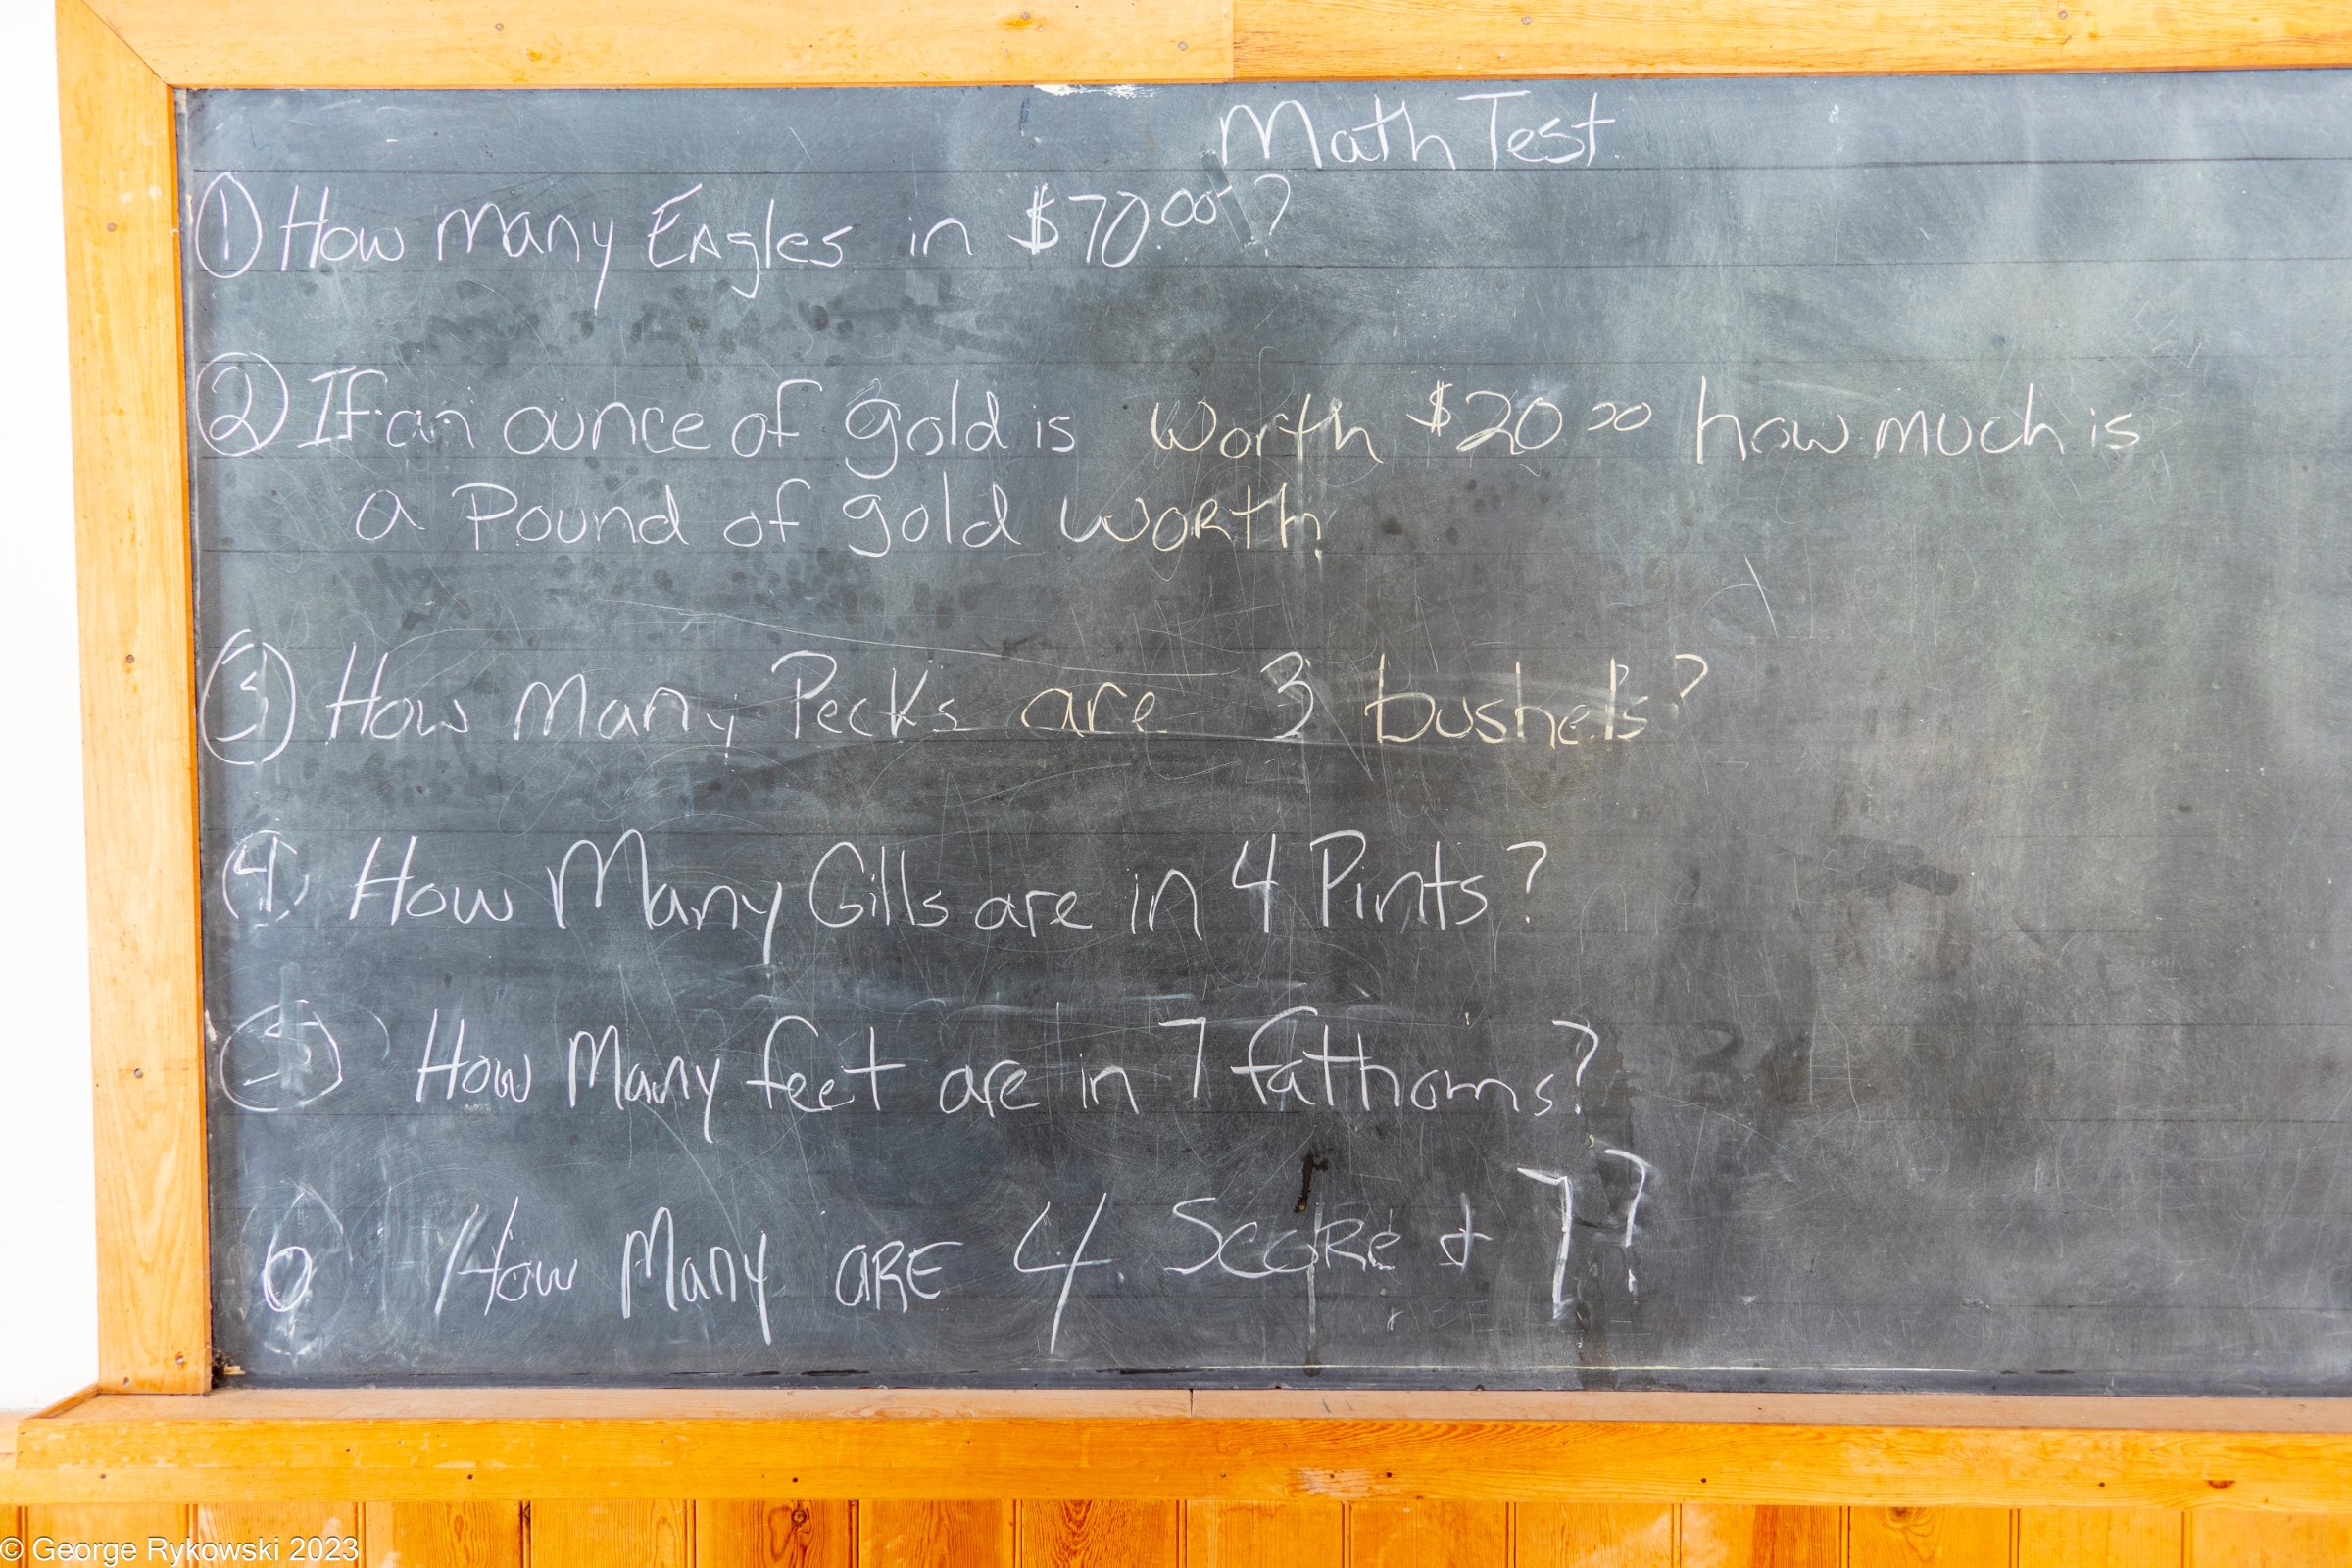 Math Test
① How many Eagles in $70.00?
② If an ounce of gold is worth $20 00 how much is
a Pound of gold worth
③ How many Pecks are 3 bushels?
④ How Many Gills are in 4 Pints?
⑤ How Many feet are in 7 fathoms?
6 How Many ARE 4 Score & 7?
© George Rykowski 2023